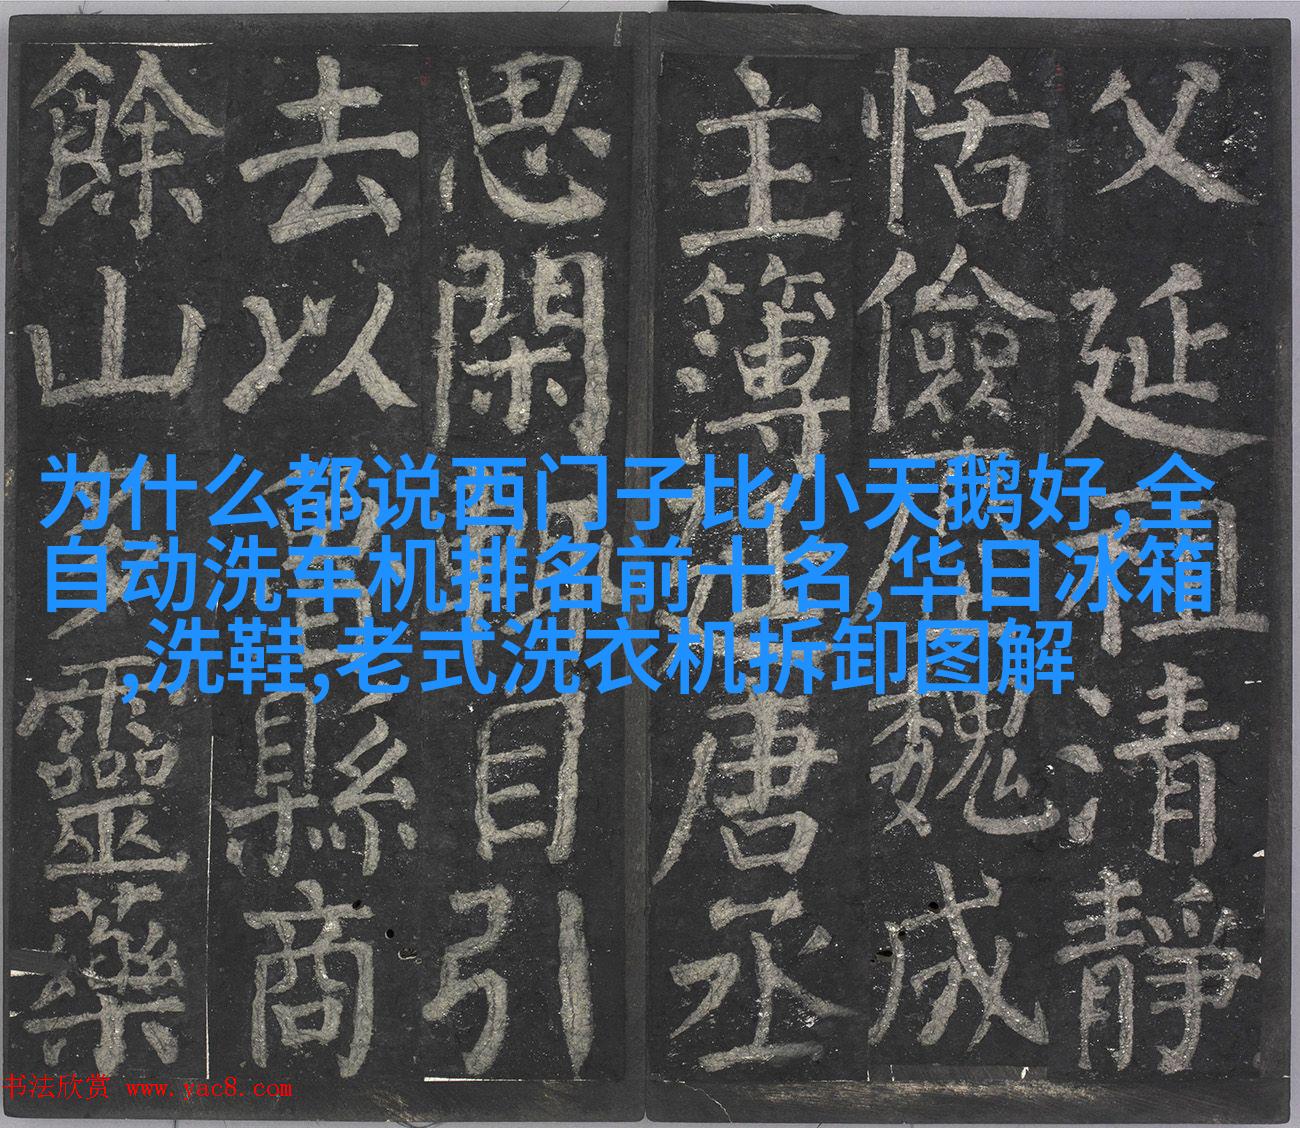 父延祖清靜
恬儉魏成
主簿延唐丞
思閑輒自引
去以魯縣商
餘山多靈藥
为什么都说西门子比小天鹅好,全
自动洗车机排名前十名,华日冰箱
,洗鞋,老式洗衣机拆卸图解
书法欣赏 www.yac8.com